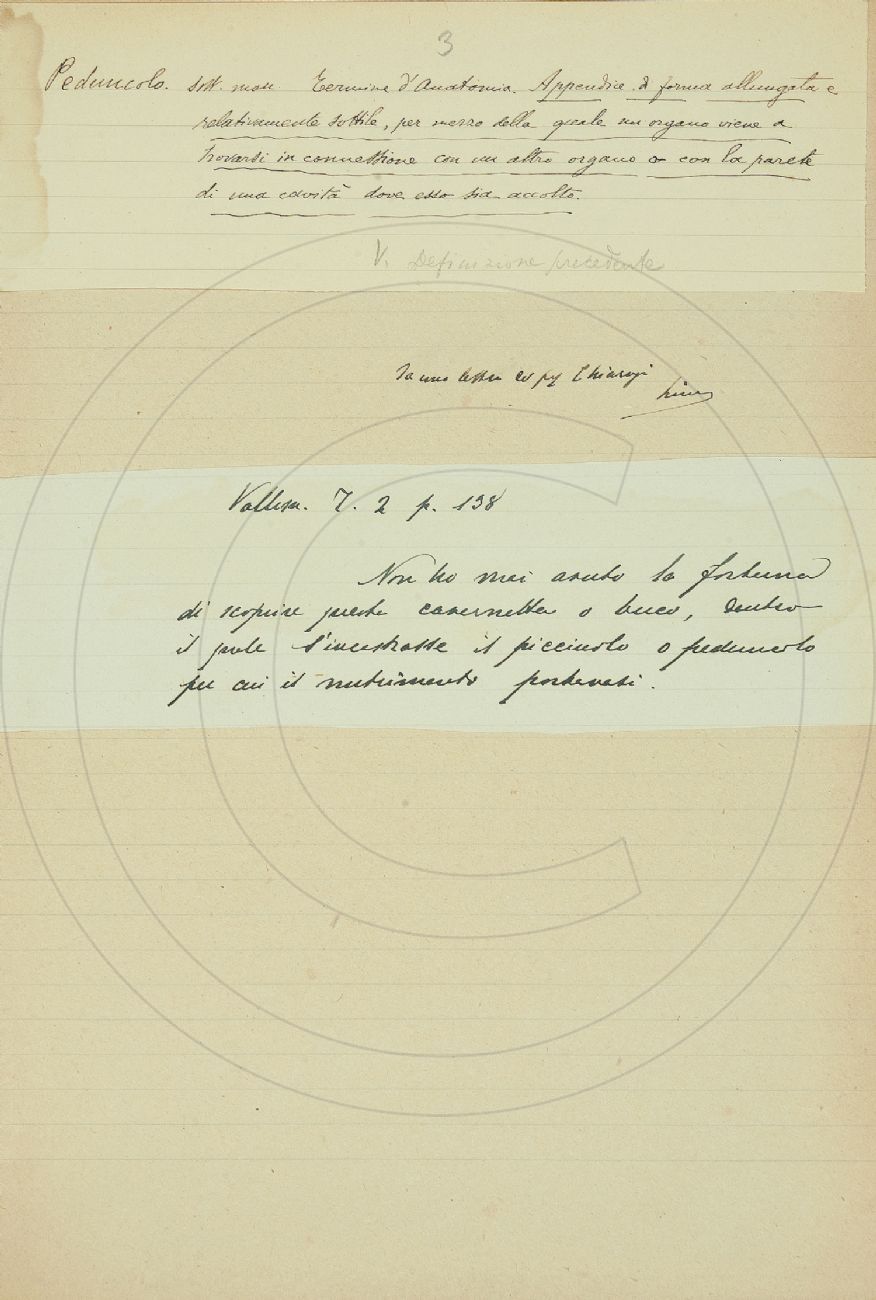 3
Peduncolo. sost. masc. Termine d'Anatomia. Appendice di forma allungata e
relativamente sottile, per mezzo della quale un organo viene a
trovarsi in connessione con un altro organo o con la parete
di una cavità dove esso sia accolto.
V. Definizione precedente
Da una lettera
Vallisn. T. 2 p. 138
Non ho mai avuto la fortuna
di scoprire questa cavernetta o buco, dentro
il quale s'incastrasse il picciuolo o peduncolo
per cui il nutrimento portavasi.